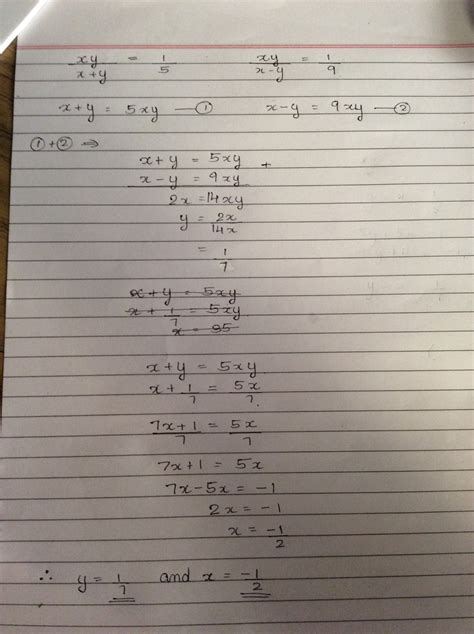 xy/x+y = 1/5    xy/x-y = 1/9
x+y = 5xy —①    x-y = 9xy —②
①+② ⇒
x+y = 5xy +
x-y = 9xy
2x = 14xy
y = 2x/14x
= 1/7
x+y = 5xy
x+1/7 = 5xy
x = 35
x+y = 5xy
x+1/7 = 5x/7.
7x+1/7 = 5x/7
7x+1 = 5x
7x-5x = -1
2x = -1
x = -1/2
∴ y = 1/7 and x = -1/2